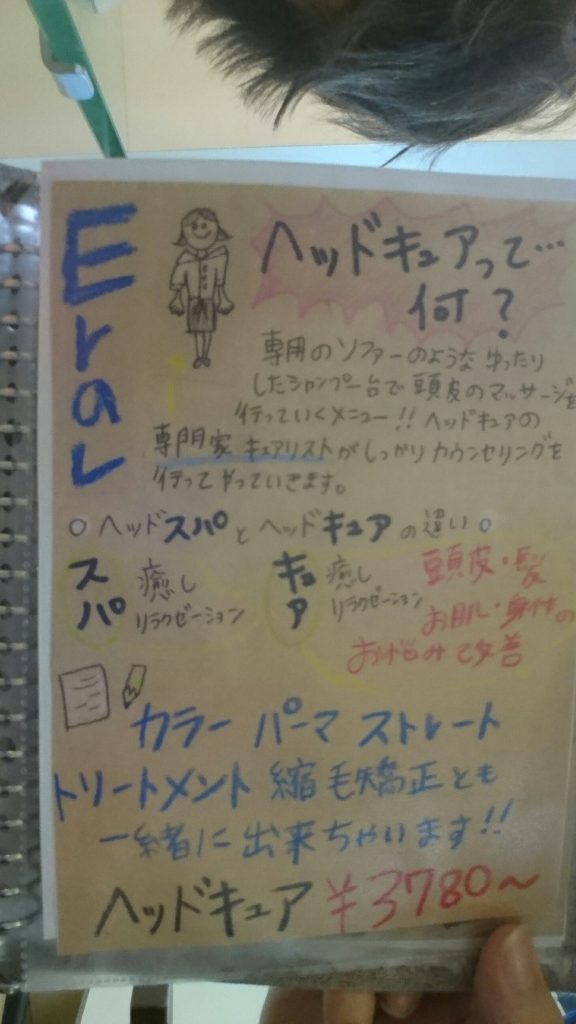 Eral
ヘッドキュアって…
何?
専用のソファーのような ゆったり
したシャンプー台で頭皮のマッサージを
行っていくメニュー!! ヘッドキュアの
専門家 キュアリストがしっかりカウンセリングを
行ってやっていきます。
○ヘッドスパとヘッドキュアの違い○
スパ 癒し リラクゼーション
キュア 癒し リラクゼーション
頭皮・髪
お肌・身体の
お悩みを改善
カラー パーマ ストレート
トリートメント 縮毛矯正とも
一緒に出来ちゃいます!!
ヘッドキュア ¥3780～